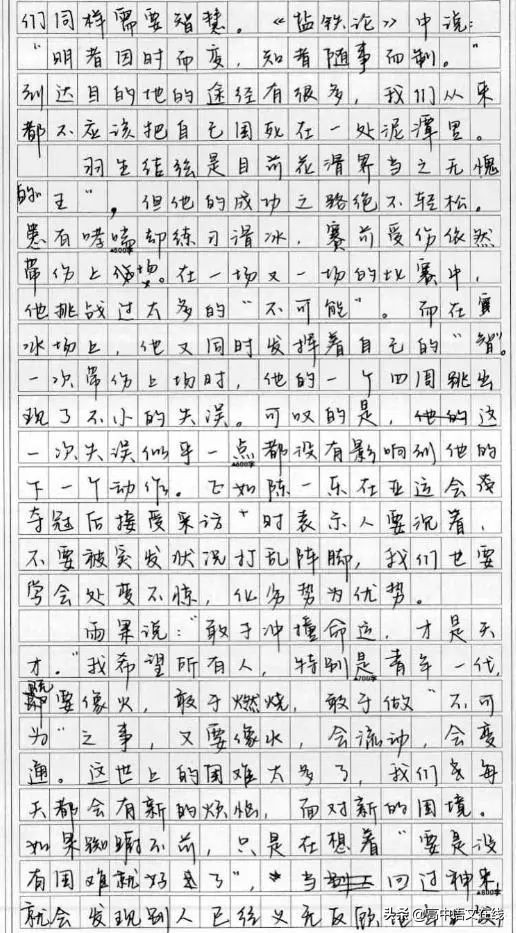 们同样需要智慧。《盐铁论》中说:
“明者因时而变,知者随事而制。”
到达目的地的途径有很多,我们从来
都不应该把自己困死在一处泥潭里。
羽生结弦是目前花滑界当之无愧
的“王”,但他的成功之路绝不轻松。
患有哮喘却练习滑冰,赛前受伤依然
带伤上场。在一场又一场的比赛中,
他挑战过太多的“不可能”。而在赛
冰场上,他又同时发挥着自己的“智”。
一次带伤上场时,他的一个四周跳出
现了不小的失误。可叹的是,他的这
一次失误似乎一点都没有影响到他的
下一个动作。正如陈一乐在亚运会
夺冠后接受采访时表示人要沉着,
不要被突发状况打乱阵脚,我们也要
学会处变不惊,化劣势为优势。
雨果说:“敢于冲撞命运,才是天
才。”我希望所有人,特别是青年一代,
既要像火,敢于燃烧,敢于做“不可
为”之事,又要像水,会流动,会变
通。这世上的困难太多了,我们每
天都会有新的烦恼,面对新的困境。
如果踟蹰不前,只是在想着“要是没
有困难就好了”,当回过神来,
就会发现别人已经义无反顾
▲500字
▲600字
▲700字
▲800字
头条@高中语文在线